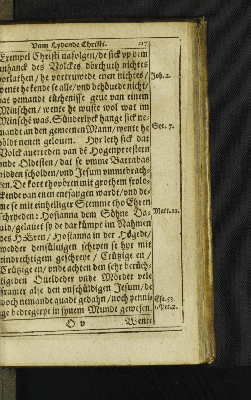 Vam Lydende Christi. 217
Exempel Christi nafolgen/de sick vp dem
anhanck des Volckes dorchuth nichtes
vorlathen/ he vertruwede emen nichtes/ Joh.2.
wente he kende se alle/ vnd behöuede nicht/
dat yemandt tüchenisse geue van einem
Minschen/ wente he wuste wol wat im
Minsche was. Sünderlyck hange sick ne-
mandt an den gemeenen Mann/ wente he
höldt nenen gelouen. Hyr leth sick dat Syr. 7.
Volck auerreden van de Hogenpreestern
vnde Oldesten/ dat se vmme Barrabas
bidden scholden/ vnd Jesum vmmebrach-
ten. De kort thovören mit grothem frolo-
ckende van enen entfangen wardt/ vnd de-
me se mit einhelliger Stemme tho Ehren
schryeden: Hosianna dem Söhne Da- Matt.21.
uid/ gelauet sy de dar kümpt im Nahmen
des HEren/ Hosianna in der Högede/
wedder densüluigen schryen se hyr mit
eindrechtigem geschreye/ Crützige en/
Crützige en/ vnde achten den sehr berüch-
tigeden Quelheder vnde Mörder vele
framer alse den vnschüldigen Jesum/ de
doch niemande quadt gedahn/ noch yennit- Esa.53.
ge bedregerye in synem Munde gewesen. 1.Pet.2.
O v Wente